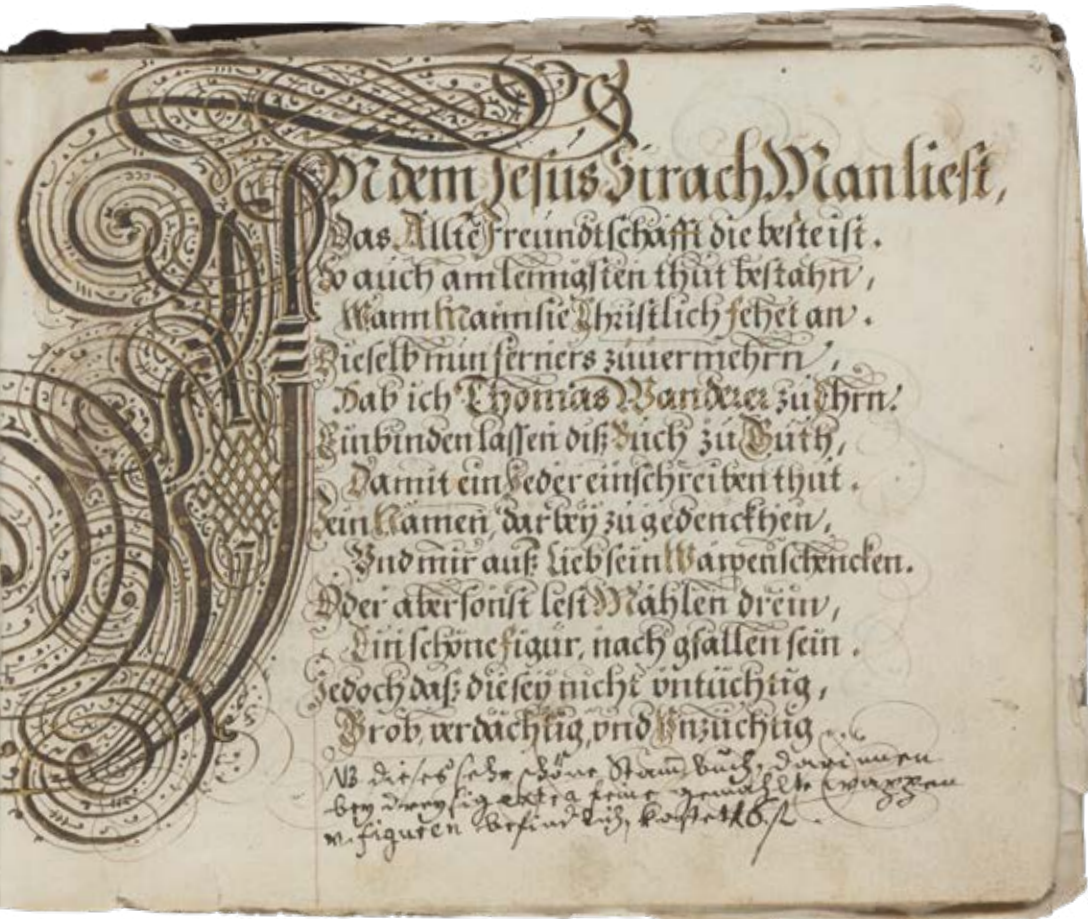 IN dem Jesus Sirach Man liest,
Das Allte Freündtschafft die beste ist.
So auch am lenngsten thut bestahn,
Wann Mann sie Christlich fehet an.
Dieselb nun ferners zuuermehrn,
Hab ich Thomas Wanderer zu Ehrn.
Einbinden lassen diß Buch zu Guth,
Damit ein Jeder einschreiben thut.
Sein Namen, darbey zu gedenckhen,
Vnd mir auß Lieb sein Wapen schencken.
Oder aber sonst lest Mahlen drein,
Ein schöne figur, nach gfallen sein.
Jedoch daß die sey nicht vntüchtig,
Grob, verdächtig, vnd Vnzüchtig
NB dieses sehr schöne Stammbuch, darinnen
bey dreysig extra feine gemahlte Wappen
v. figuren befindlich, kostet 16 f